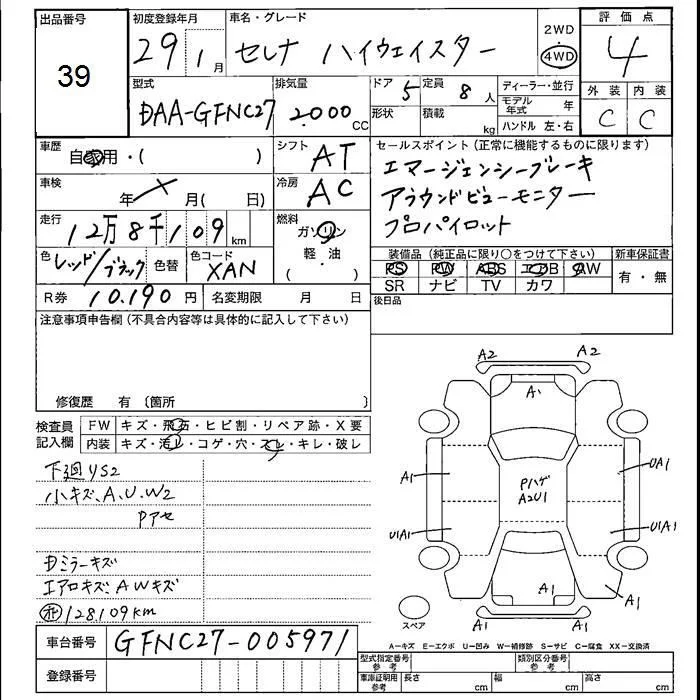 出品番号
39
初度登録年月
29 1月
車名・グレード
セレナ ハイウェイスター
2WD
4WD
評価点
4
型式
DAA-GFNC27
排気量
2000cc
ドア 5
定員 8人
形状
積載 kg
ディーラー・並行
モデル年式 年
ハンドル 左・右
外装 内装
C C
車歴
自家用・( )
シフト
AT
セールスポイント (正常に機能するものに限ります)
エマージェンシーブレーキ
アラウンドビューモニター
プロパイロット
車検
年 月( 日)
冷房
AC
走行
12万8千109km
燃料
ガソリン
軽・油
( )
色
レッド/ブラック
色替
色コード
XAN
装備品 (純正品に限り○をつけて下さい)
PS PW ABS エアB AW
SR ナビ TV カワ
新車保証書
有・無
R券 10.190円
名変期限 月 日
後日品
注意事項申告欄 (不具合内容等は具体的に記入して下さい)
修復歴 有 〔箇所 〕
検査員記入欄
FW キズ・飛石・ヒビ割・リペア跡・X要
内装 キズ・汚れ・コゲ・穴・スレ・キレ・破レ
下廻りS2
小キズ、A、U、W2
Pアセ
Dミラーキズ
エアロキズ、AWキズ
128,109km
車台番号
GFNC27-005971
登録番号
A2 A2
A1
A1
UA1
Pハゲ
A2U1
U1A1
U1A1
A1
A1
A1 A1
スペア
A-キズ E-エクボ U-凹み W-補修跡 S-サビ C-腐食 XX-交換済
型式指定番号 参考
類別区分番号 参考
車庫証明用 参考
長さ cm
幅 cm
高さ cm